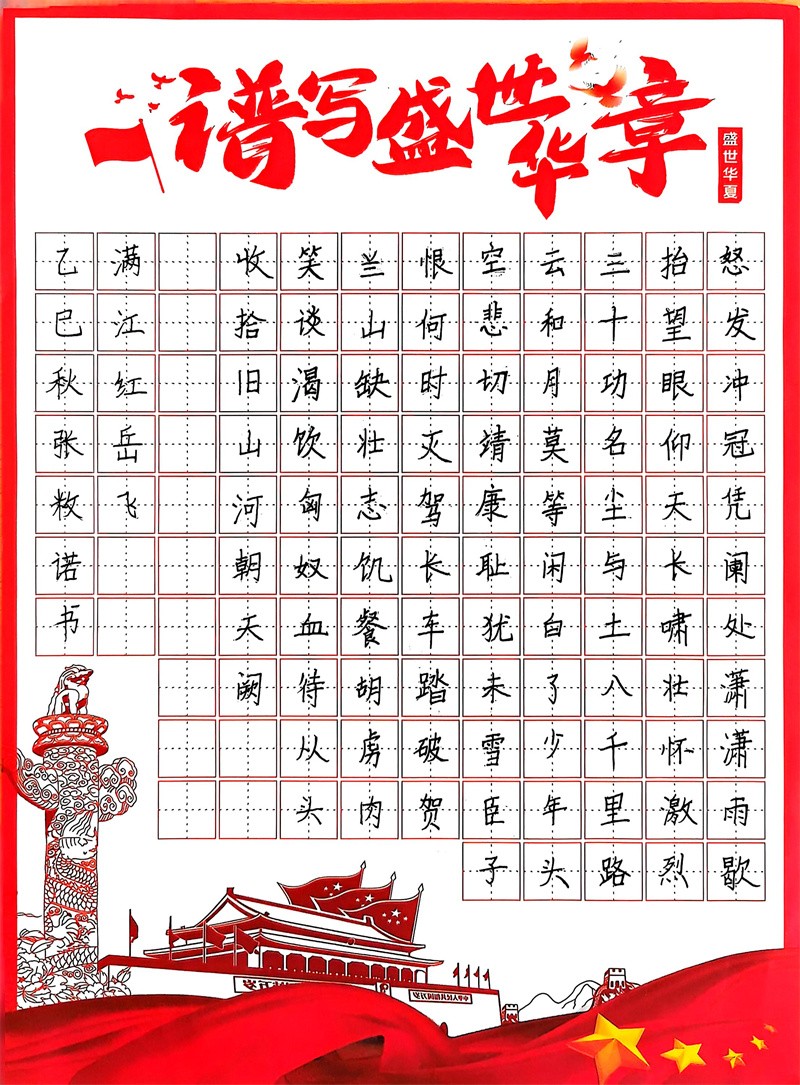 谱写盛世华章
盛世华夏
怒发冲冠凭阑处潇潇雨歇
抬望眼仰天长啸壮怀激烈
三十功名尘与土八千里路
云和月莫等闲白了少年头
空悲切靖康耻犹未雪臣子
恨何时灭驾长车踏破贺
兰山缺壮志饥餐胡虏肉
笑谈渴饮匈奴血待从头
收拾旧山河朝天阙
满江红岳飞
乙巳秋张敉诺书